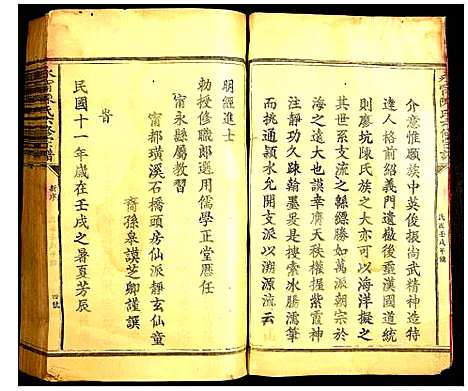 介意惟願族中英俊振尚武精神造特
達人格前紹義門遺徽後垂漢國道統
則慶坑陳氏族之大亦可以海洋擬之
其世系支流之緜繆勝如萬派朝宗于
海之遠大也謨幸膺天秩權握紫霞神
注靜功久疎翰墨裒是搜索冰勝濡筆
而挑通穎水允用以朔源流云
明經進士
勅授修職郎選用儒學正堂歷任
甯永縣屬教習
甯都璜溪石橋頭房仙派靜玄仙童
裔孫皋謨芝卿謹譔
旹
民國十一年歲在壬戌之暑夏芳辰
四號
民國壬戌年鐫